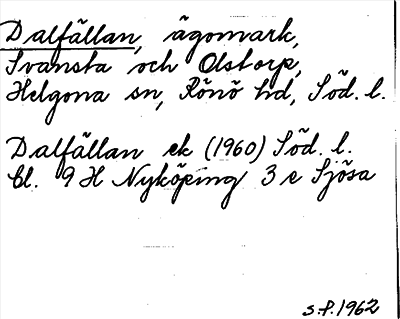 Dalfällan, ägomark,
Svansta och Olstorp,
Helgona sn, Rönö hd, Söd. l.
Dalfällan ek (1960) Söd. l.
Bl. 9 H Nyköping 3 e Sjösa
S.P. 1962